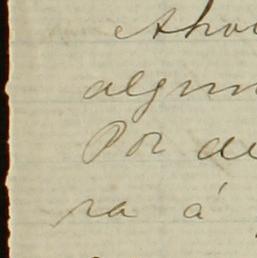 Ahor
algun
Por de
ra á